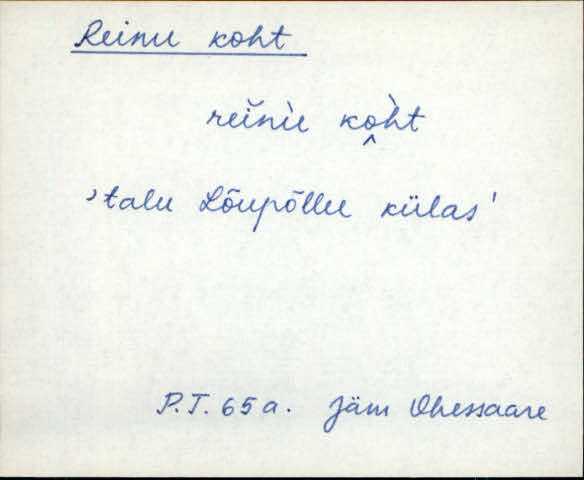 Reinu koht
reĭnu koh̀t
'talu Lõupõllu külas'
P.T. 65a. Jäm Ohessaare